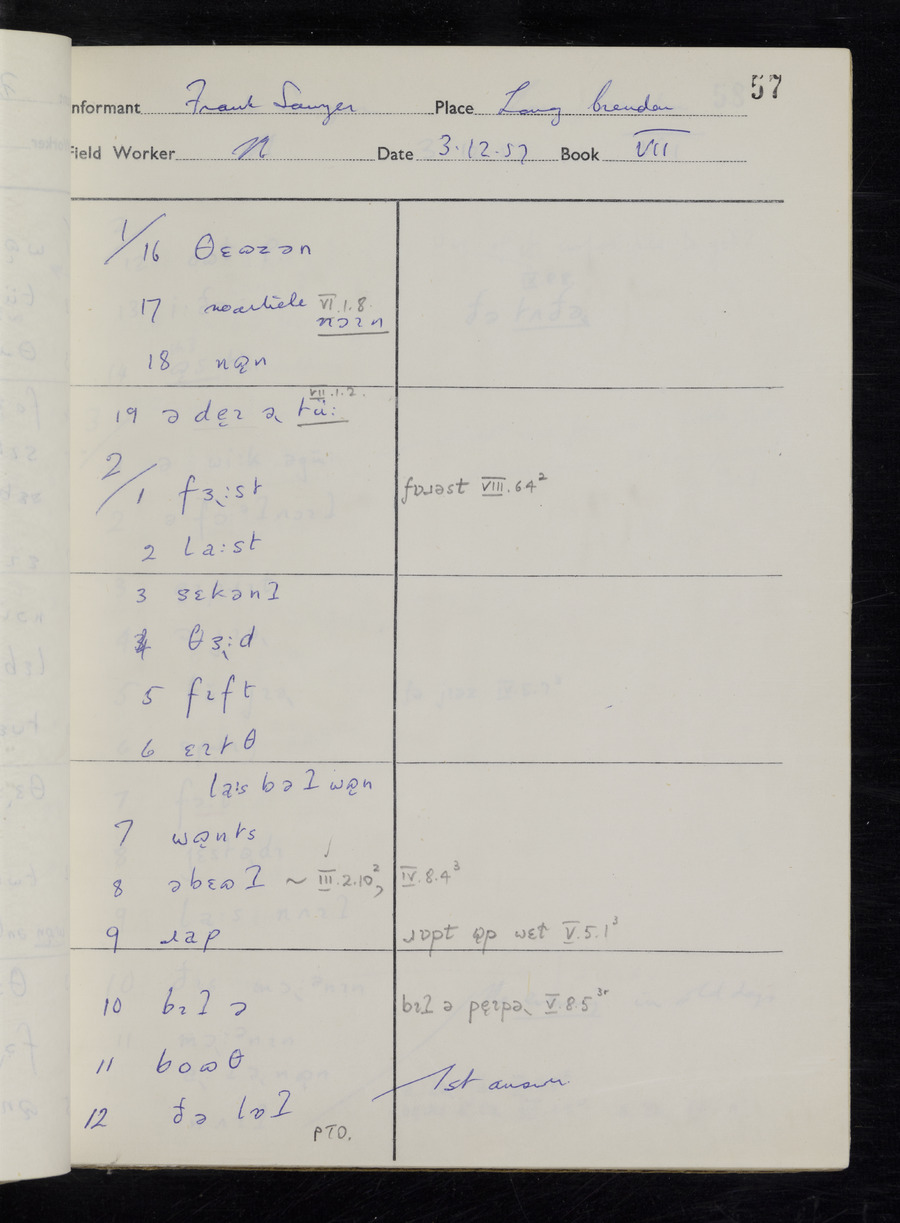 57
nformant Frank Sawyer Place Long Crendon
Field Worker N Date 3.12.57 Book VII
1/16 θɛɷzən
17 noarticle VI.1.8.
nɔɪn
18 nąn
VII.1.2.
19 ə dɛ̣ɪ ə˞ tü:
2/1 fɜ˞:st fʋɹəst VIII.64²
2 la:st
3 sɛkənt
4 θɜ˞:d
5 fɪft
6 ɛɪtθ
la:s bət wən
7 wənts
8 əbɛɷt ~ III.2.10², IV.8.4³
9 ɹap ɹɒpt əp wɛt V.5.1³
10 bɪt ə bɪt ə pɛ̣ɪpə˞ V.8.5
11 boɷθ
1st answer
12 ðə lɒt
PTO.